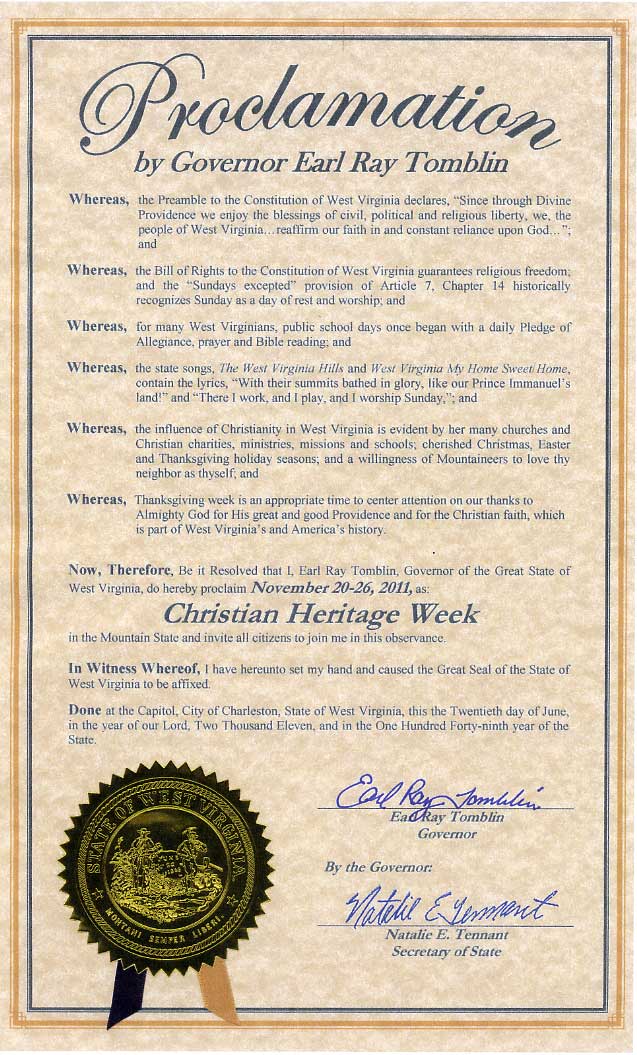 Proclamation
by Governor Earl Ray Tomblin
Whereas, the Preamble to the Constitution of West Virginia declares, “Since through Divine
Providence we enjoy the blessings of civil, political and religious liberty, we, the
people of West Virginia…reaffirm our faith in and constant reliance upon God…”;
and
Whereas, the Bill of Rights to the Constitution of West Virginia guarantees religious freedom;
and the “Sundays excepted” provision of Article 7, Chapter 14 historically
recognizes Sunday as a day of rest and worship; and
Whereas, for many West Virginians, public school days once began with a daily Pledge of
Allegiance, prayer and Bible reading; and
Whereas, the state songs, The West Virginia Hills and West Virginia My Home Sweet Home,
contain the lyrics, “With their summits bathed in glory, like our Prince Immanuel’s
land!” and “There I work, and I play, and I worship Sunday,”; and
Whereas, the influence of Christianity in West Virginia is evident by her many churches and
Christian charities, ministries, missions and schools; cherished Christmas, Easter
and Thanksgiving holiday seasons; and a willingness of Mountaineers to love thy
neighbor as thyself; and
Whereas, Thanksgiving week is an appropriate time to center attention on our thanks to
Almighty God for His great and good Providence and for the Christian faith, which
is part of West Virginia’s and America’s history.
Now, Therefore, Be it Resolved that I, Earl Ray Tomblin, Governor of the Great State of
West Virginia, do hereby proclaim November 20-26, 2011, as:
Christian Heritage Week
in the Mountain State and invite all citizens to join me in this observance.
In Witness Whereof, I have hereunto set my hand and caused the Great Seal of the State of
West Virginia to be affixed.
Done at the Capitol, City of Charleston, State of West Virginia, this the Twentieth day of June,
in the year of our Lord, Two Thousand Eleven, and in the One Hundred Forty-ninth year of the
State.
STATE OF WEST VIRGINIA
MONTANI SEMPER LIBERI.
Earl Ray Tomblin
Earl Ray Tomblin
Governor
By the Governor:
Natalie E Tennant
Natalie E. Tennant
Secretary of State